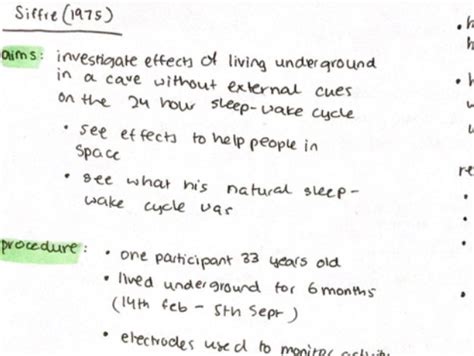 Siffre (1975)
aims: investigate effects of living underground
in a cave without external cues
on the 24 hour sleep-wake cycle
• see effects to help people in
space
• see what his natural sleep-
wake cycle was
procedure: • one participant 33 years old
• lived underground for 6 months
(14th feb - 5th Sept)
• electrodes used to monitor activity
re